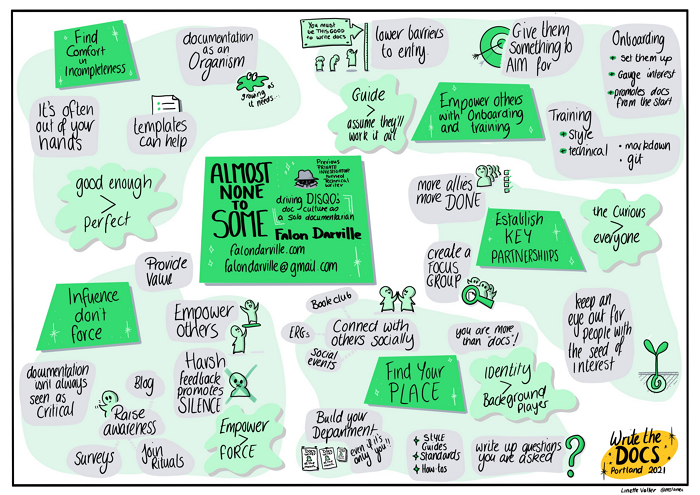 Find
Comfort
in
Incompleteness
documentation
as an
Organism
growing as
it needs...
It's often
out of your
hands
templates
can help
good enough
>
perfect
You must
be THIS GOOD
to write docs
lower barriers
to entry
Give them
Something to
AIM for
Onboarding
Set them up
Gauge interest
promotes docs
from the start
Guide
>
assume they'll
work it out
Empower others
with Onboarding
and training
Training
style
technical
• markdown
• git
ALMOST
NONE
TO
SOME
Previous
PRIVATE
INVESTIGATOR
turned
Technical
Writer
driving DISQOs
doc culture as
a solo documentarian
Falon Darville
falondarville.com
falondarville@gmail.com
more allies
more DONE
Establish
KEY
PARTNERSHIPS
the Curious
>
everyone
create a
FOCUS
GROUP
keep an
eye out for
people with
the seed of
interest
Influence
don't
force
Provide
Value
Empower
others
documentation
isn't always
seen as
Critical
Blog
Raise
awareness
Harsh
feedback
promotes
SILENCE
Surveys
Join
Rituals
Empower
>
FORCE
Book club
ERGs
Connect with
others socially
social
events
you are more
than docs!
Find Your
PLACE
identity
>
Background
player
Build your
Department
even if it's
only you!!
STYLE
Guides
Standards
How-tos
write up questions
you are asked
?
Write the
DOCS
Portland 2021